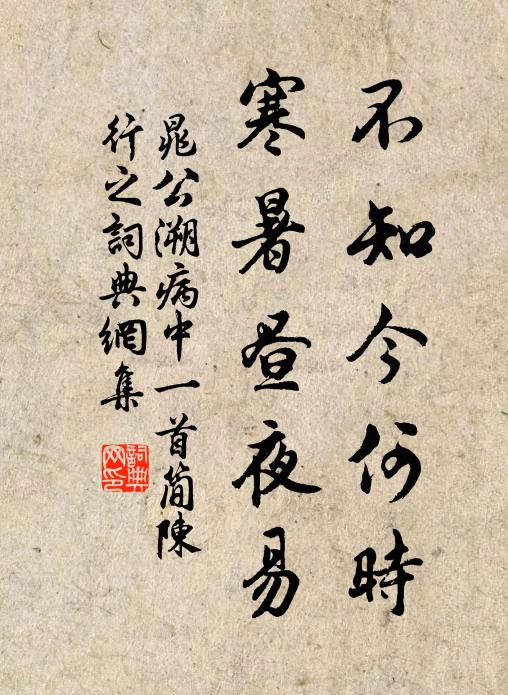 不知今何時
寒暑昼夜易
晁公溯病中一首簡陳
行之詞典網集
詞典
网印